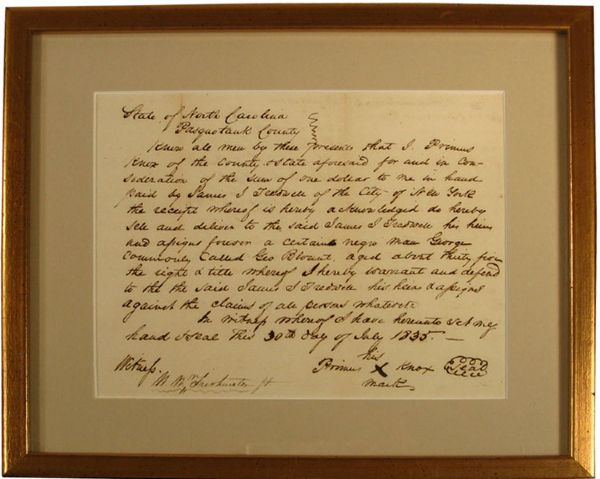 State of North Carolina
Pasquotank County
Know all men by these presents that I. Primus
Knox of the County & state aforesaid for and in con-
sideration of the sum of one dollar to me in hand
paid by James I Tredwell of the City of New York
the receipt whereof is hereby acknowledged do hereby
sell and deliver to the said James I Tredwell his heirs
and assigns forever a certain negro man George
Commonly Called Geo Blount, aged about thirty four
the right & title whereof I hereby warrant and defend
to the the said James I Tredwell his heirs & assigns
against the claims of all persons whatever
In witness whereof I have hereunto set my
hand & seal this 30th day of July 1835. —
his
Witness. Primus X Knox Seal
mark